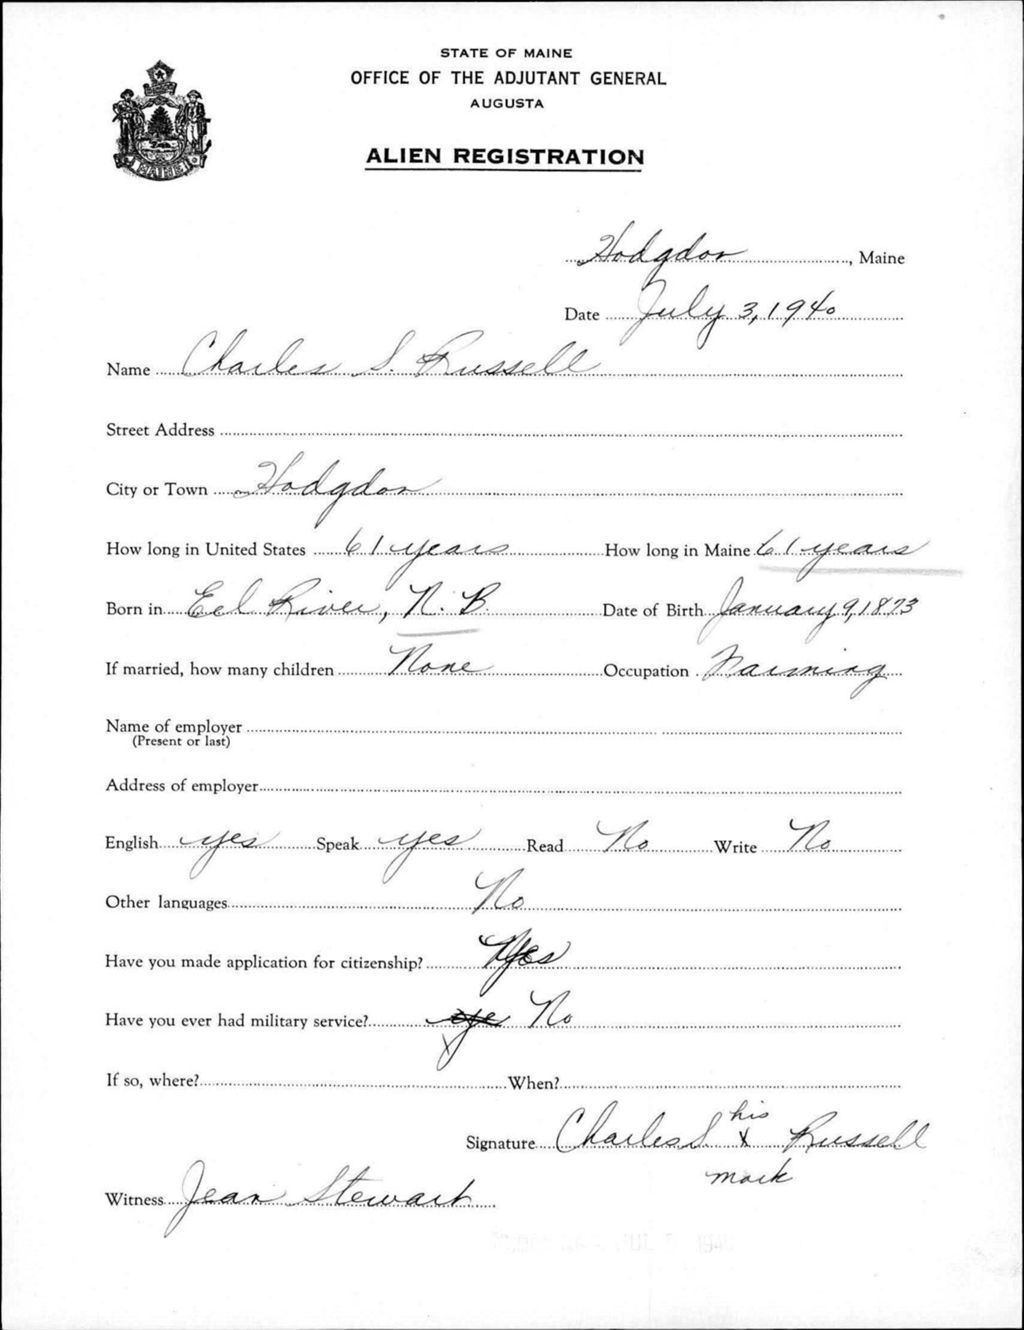 STATE OF MAINE
OFFICE OF THE ADJUTANT GENERAL
AUGUSTA
ALIEN REGISTRATION
MAINE
Hodgdon, Maine
Date July 3, 1940
Name Charles S. Russell
Street Address
City or Town Hodgdon
How long in United States 61 years How long in Maine 61 years
Born in Eel River, N. B. Date of Birth January 9, 1873
If married, how many children None Occupation Farming
Name of employer
(Present or last)
Address of employer
English yes Speak yes Read No Write No
Other languages No
Have you made application for citizenship? Yes
Have you ever had military service? yes No
If so, where? When?
his
Signature Charles S. x Russell
mark
Witness Jean Stewart